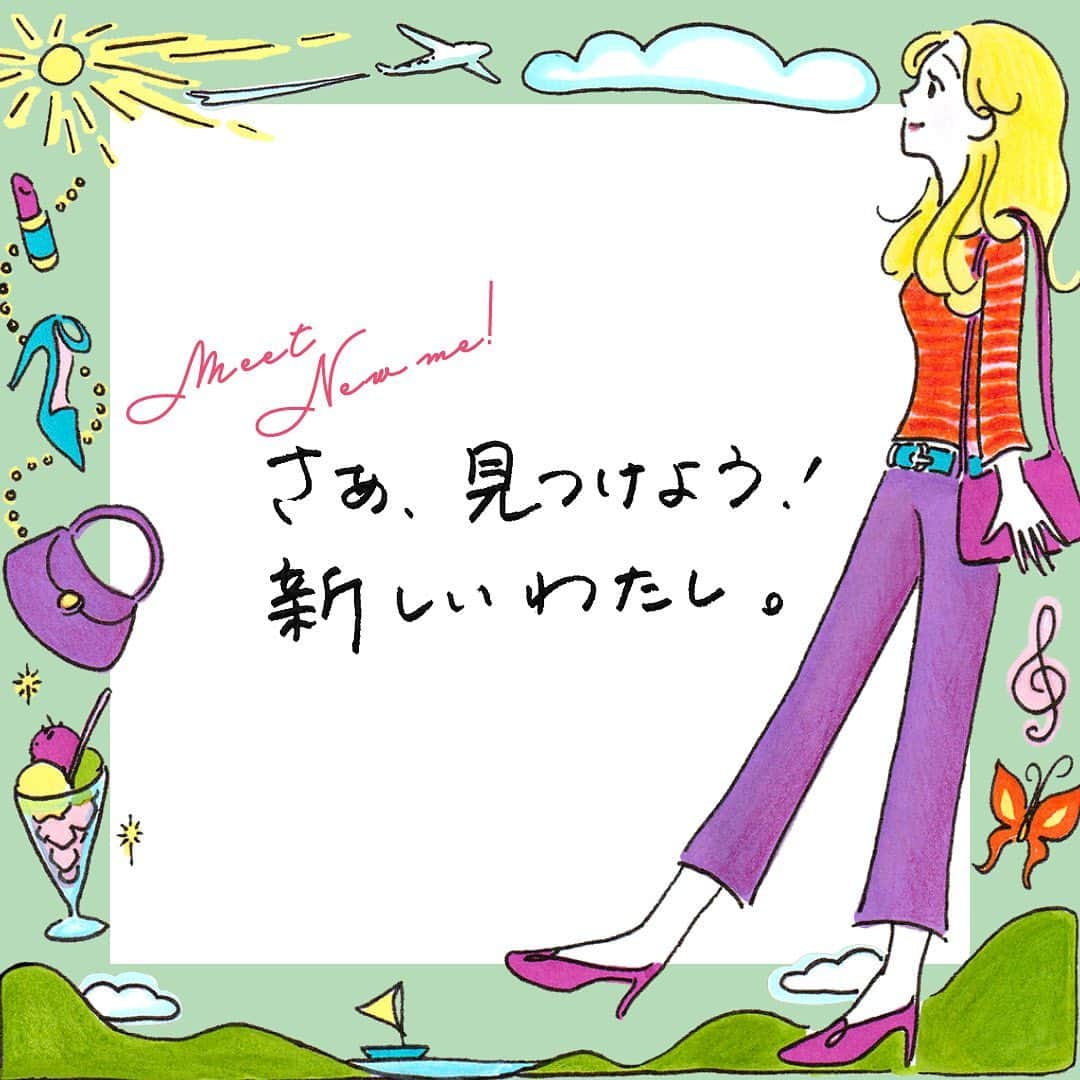 Meet
New me!
さあ、見つけよう！
新しいわたし。